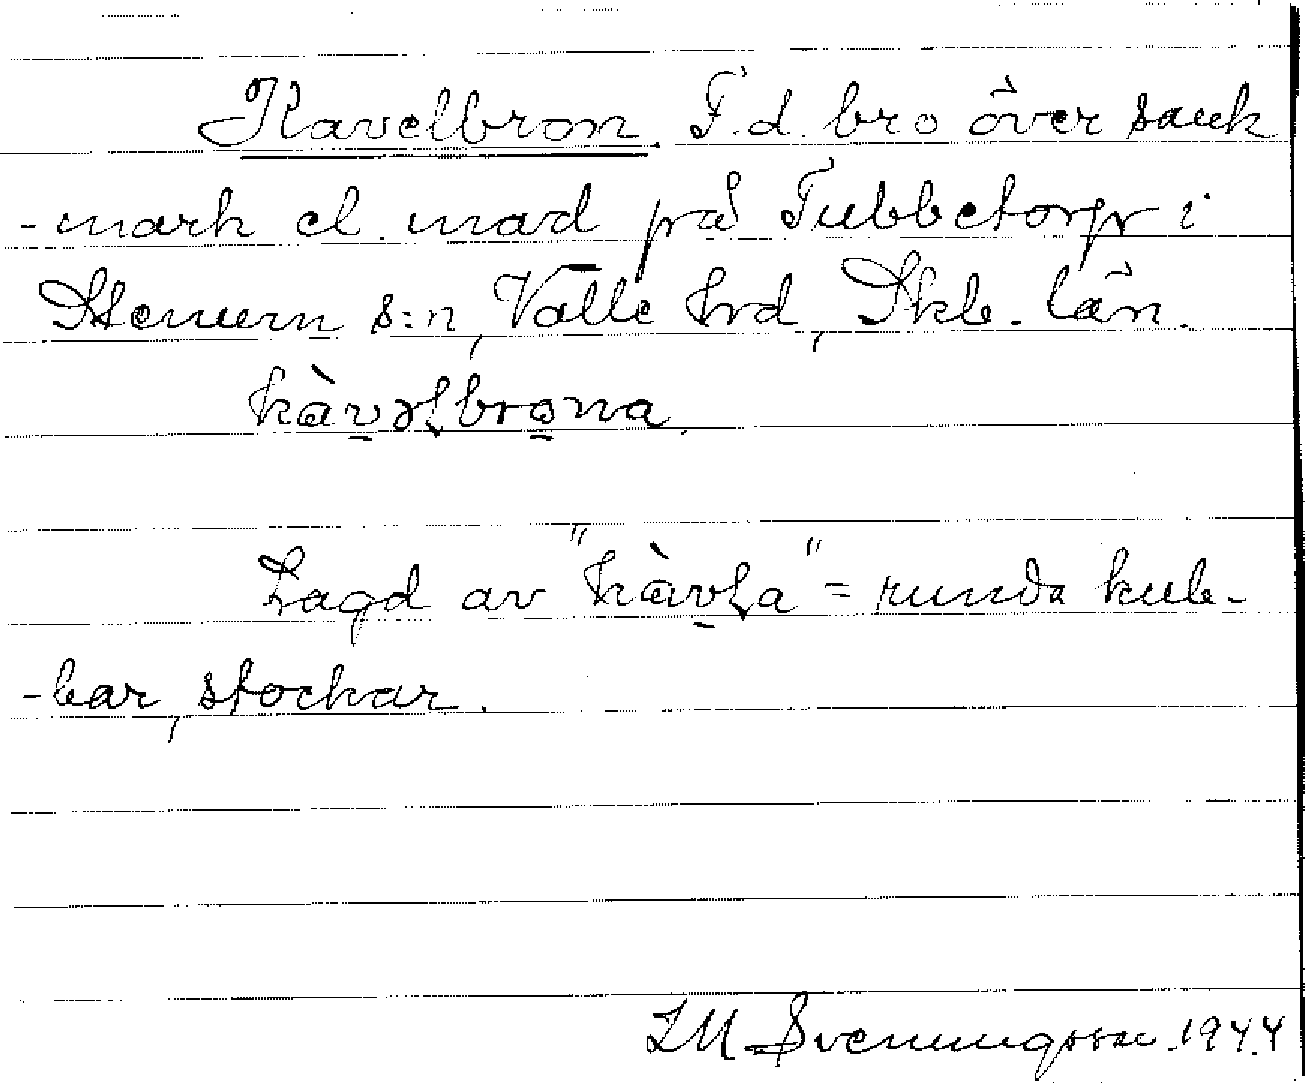 Kavelbron. F.d. bro över sank
-mark el. mad på Tubbetorp i
Stenum s:n, Valle hrd, Skb. län.
kàvəlbrona.
Lagd av "kàvɽa" = runda kub-
-bar, stockar.
LM Svenungsson 1944